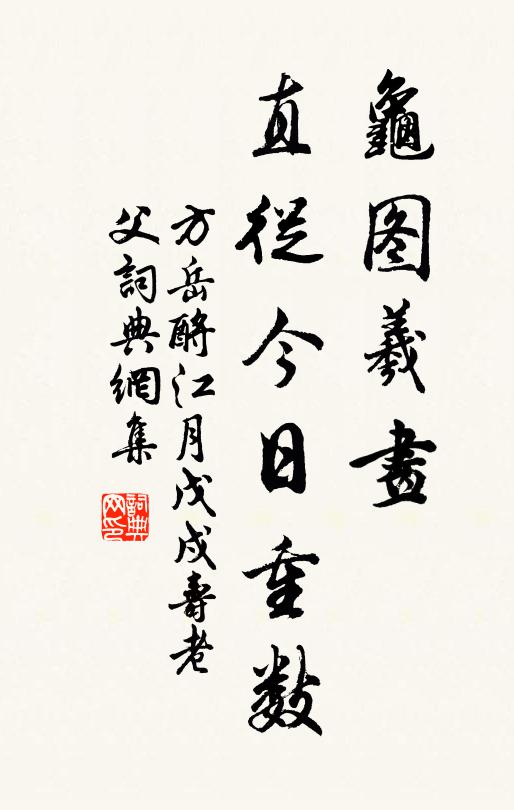 龜图羲畫
直從今日重数
方岳酹江月戊戌壽老
父詞典網集
詞典网印